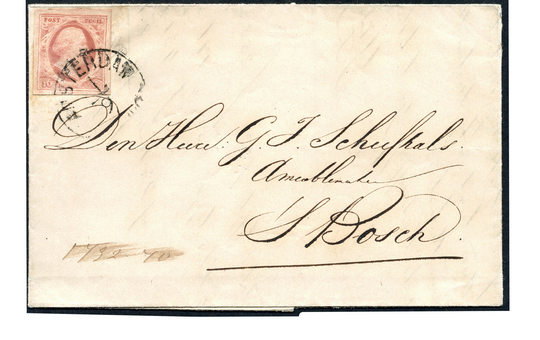 POST ZEGEL
AMSTERDAM
Den Heere G. J. Scheefhals.
Ameublementen
S Bosch.